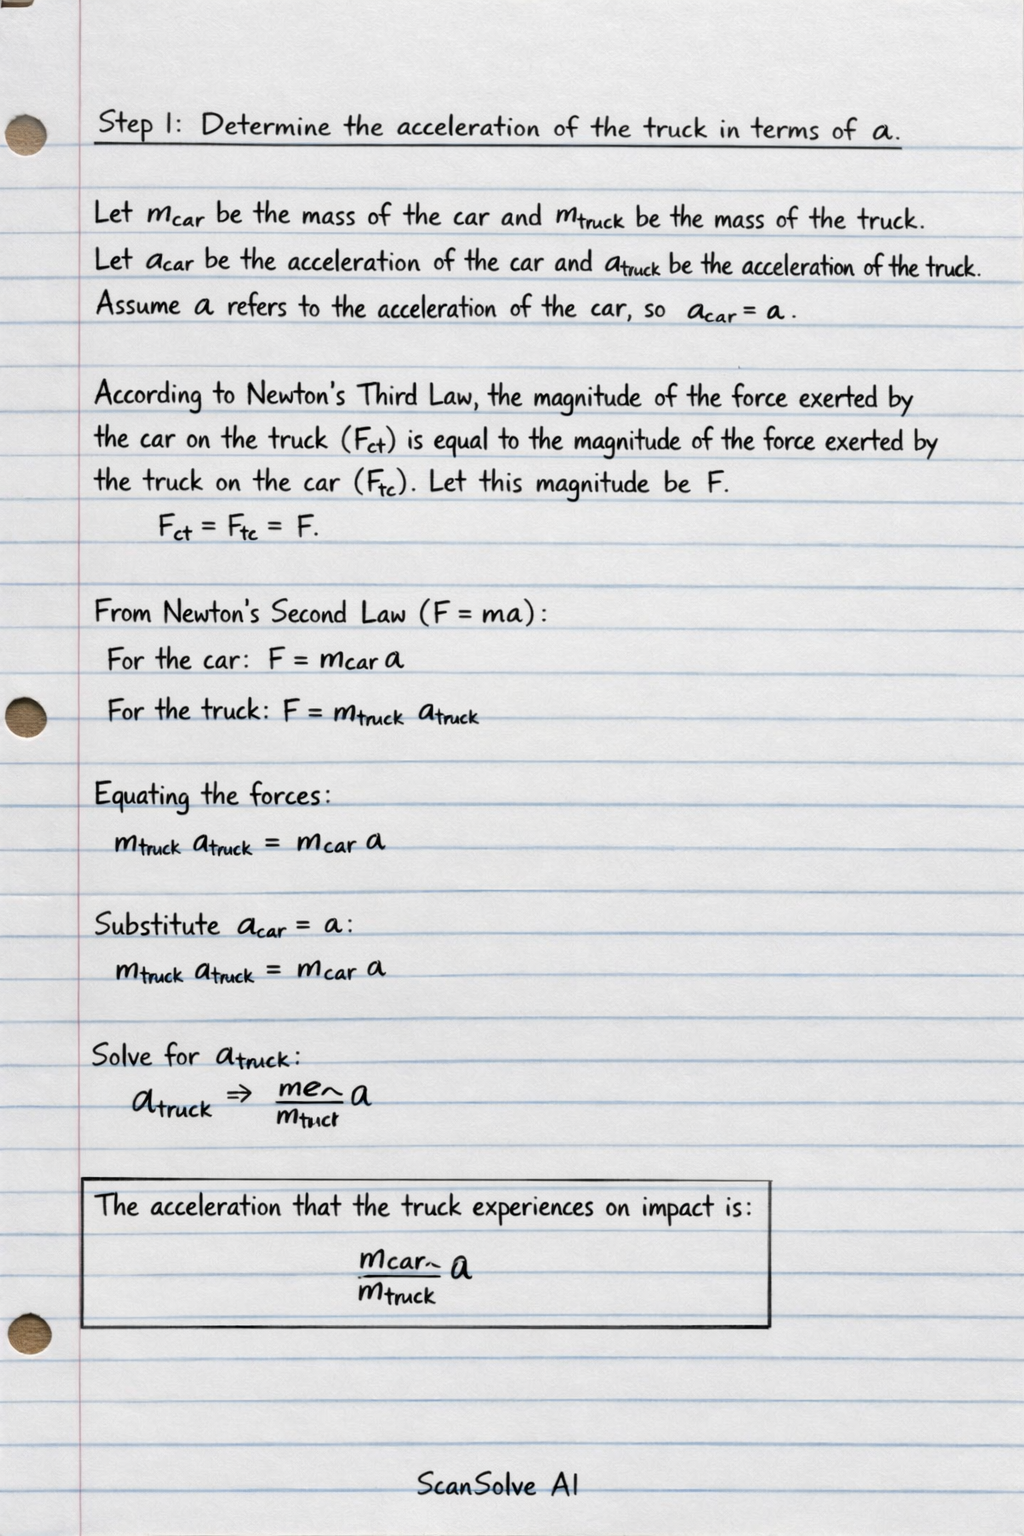 Step 1: Determine the acceleration of the truck in terms of a.
Let m_car be the mass of the car and m_truck be the mass of the truck.
Let a_car be the acceleration of the car and a_truck be the acceleration of the truck.
Assume a refers to the acceleration of the car, so a_car = a.
According to Newton's Third Law, the magnitude of the force exerted by
the car on the truck (F_ct) is equal to the magnitude of the force exerted by
the truck on the car (F_tc). Let this magnitude be F.
F_ct = F_tc = F.
From Newton's Second Law (F = ma):
For the car: F = m_car a
For the truck: F = m_truck a_truck
Equating the forces:
m_truck a_truck = m_car a
Substitute a_car = a:
m_truck a_truck = m_car a
Solve for a_truck:
a_truck ⇒ a
The acceleration that the truck experiences on impact is:
m_car a
m_truck
ScanSolve AI